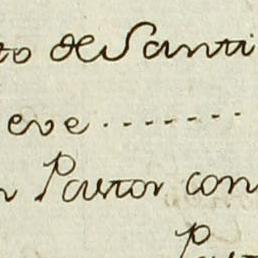 to de Santi
eve ........
n Pastor con
Pa